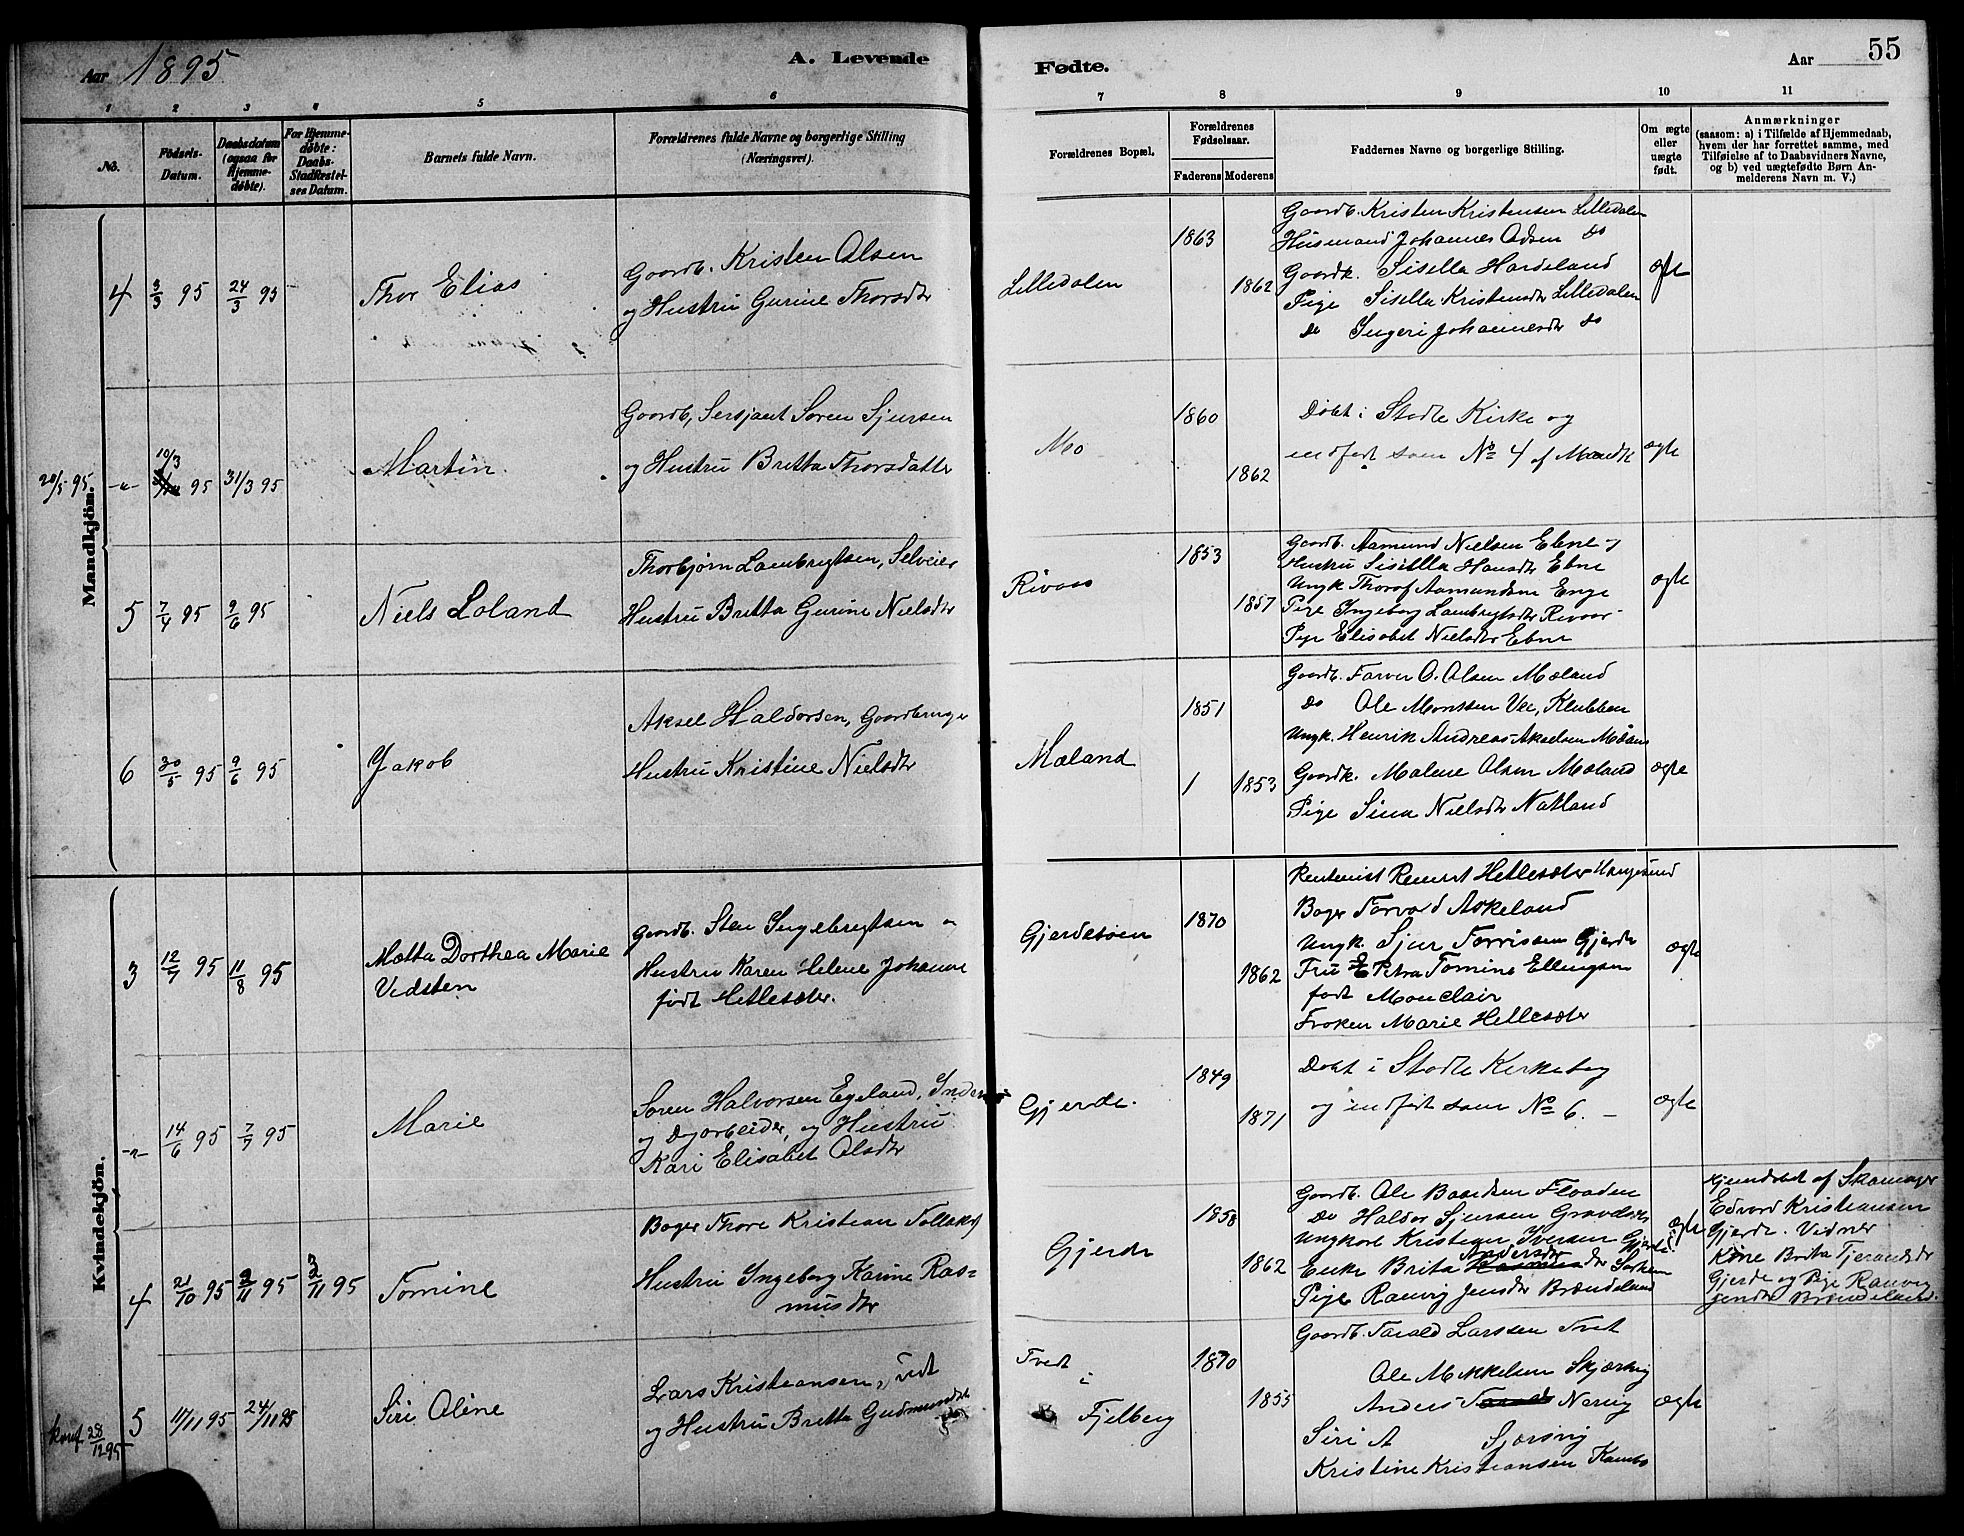 Aar 1895
A. Levende
Fødte.
Aar
55
1 2 3 4 5 6 7 8 9 10 11
No.
Födsels-
Datum.
Daabsdatum
(ogsaa for
Hjemme-
døbte).
For Hjemme-
døbte:
Daabs-
Stadfæstel-
ses Datum.
Barnets fulde Navn.
Forældrenes fulde Navne og borgerlige Stilling
(Næringsvei).
Forældrenes Bopæl.
Forældrenes
Fødselsaar.
Faderens Moderens
Faddernes Navne og borgerlige Stilling.
Om ægte
eller
uægte
født.
Anmærkninger
(saasom: a) i Tilfælde af Hjemmedaab,
hvem der har forrettet samme, med
Tilføielse af to Daabsvidners Navne,
og b) ved uægtefødte Børn An-
melderens Navn m. V.)
Mandkjön.
4 3/3 95 24/3 95
Thor Elias
Gaardb. Kristen Olsen
og Hustru Gurine Thorsdtr
Lilledalen
1863
1862
Gaardb. Kristen Kristensen Lilledalen
Husmand Johannes Odsen do
Gaardk. Sisella Hardeland
Pige Sisella Kristensdtr Lilledalen
do Ingeri Johannesdtr do
ægte
20/5 95
-"- 10/3 95 31/3 95
Martin
Gaardb, Sersjant Søren Sjursen
og Hustru Britta Thorsdatter
Mo
1860
1862
Døbt i Stødle Kirke og
indført som No 4 af Mandk
ægte
5 7/4 95 9/6 95
Niels Loland
Thorbjørn Lambregtsen, Selveier
Hustru Britta Gurine Nielsdtr
Rivaas
1853
1857
Gaardb. Aamund Nielsen Ebne og
Hustru Sisilla Hansdtr Ebne
Ungk Thorof Aamundsen Enge
Pige Ingeborg Lambregtsdtr Rivaas
Pige Elisabet Nielsdtr Ebne
ægte
6 30/5 95 9/6 95
Jakob
Aksel Haldorsen, Gaardbruger
Hustru Kristine Nielsdtr
Mæland
1851
1
1853
Gaardb. Farver O. Olsen Mæland
do Ole Montsen Vee, Klubben
Ungk. Henrik Andreas Akselsen Mæland
Gaardk. Malene Olsen Mæland
Pige Sina Nielsdtr Natland
ægte
Kvindekjön.
3 12/7 95 11/8 95
Matta Dorthea Marie
Vedsten
Gaardb. Sten Ingebregtsen og
Hustru Karen Helene Johanne
født Hetlesæter.
Gjerdestøen
1870
1862
Rentenist Hetlesæter Haugesund
Bager Torvard Askeland
Ungk. Sjur Gjerde
Fru Petra Tomine Ellingsen
født Monclair
Frøken Marie Hetlesæter
ægte
-"- 14/6 95 7/7 95
Marie
Søren Halvorsen Egeland,
og Dagarbeider, og Hustru
Kari Elisabet Olsdtr
Gjerde.
1849
1871
Døbt i Stødle Kirkebog
og indført som No 6. -
ægte
4 21/10 95 2/11 95 3/11 95
Tomine
Bager Thore Kristian Tollaksen
Hustru Ingeborg Karine Ras=
musdtr
Gjerde
1858
1862
Gaardb. Ole Baardsen Flaaden
Do Haldor Sjursen
Ungkarl Kristian Iversen Gjerde
Enke Brita Andersdtr
Pige Ranvig Jensdtr Brændeland
ægte
Hjemdøbt af Skomager
Edvard Kristiansen
Gjerde. Vidner
Kone Brita
Gjerde og Pige Ranvig
Jensdtr Brændeland.
konf 28/12 95
5 17/11 95 24/11 95
Siri Oline
Lars Kristiansen, Tvedt
og Hustru Britta Gudmundsdtr
Tvedt
i
Fjelberg
1870
1855
Gaardb. Torald Larssen Tvet
Ole Mikkelsen
Anders Nervig
Siri A
Kristine Kristiansen Kambo
ægte